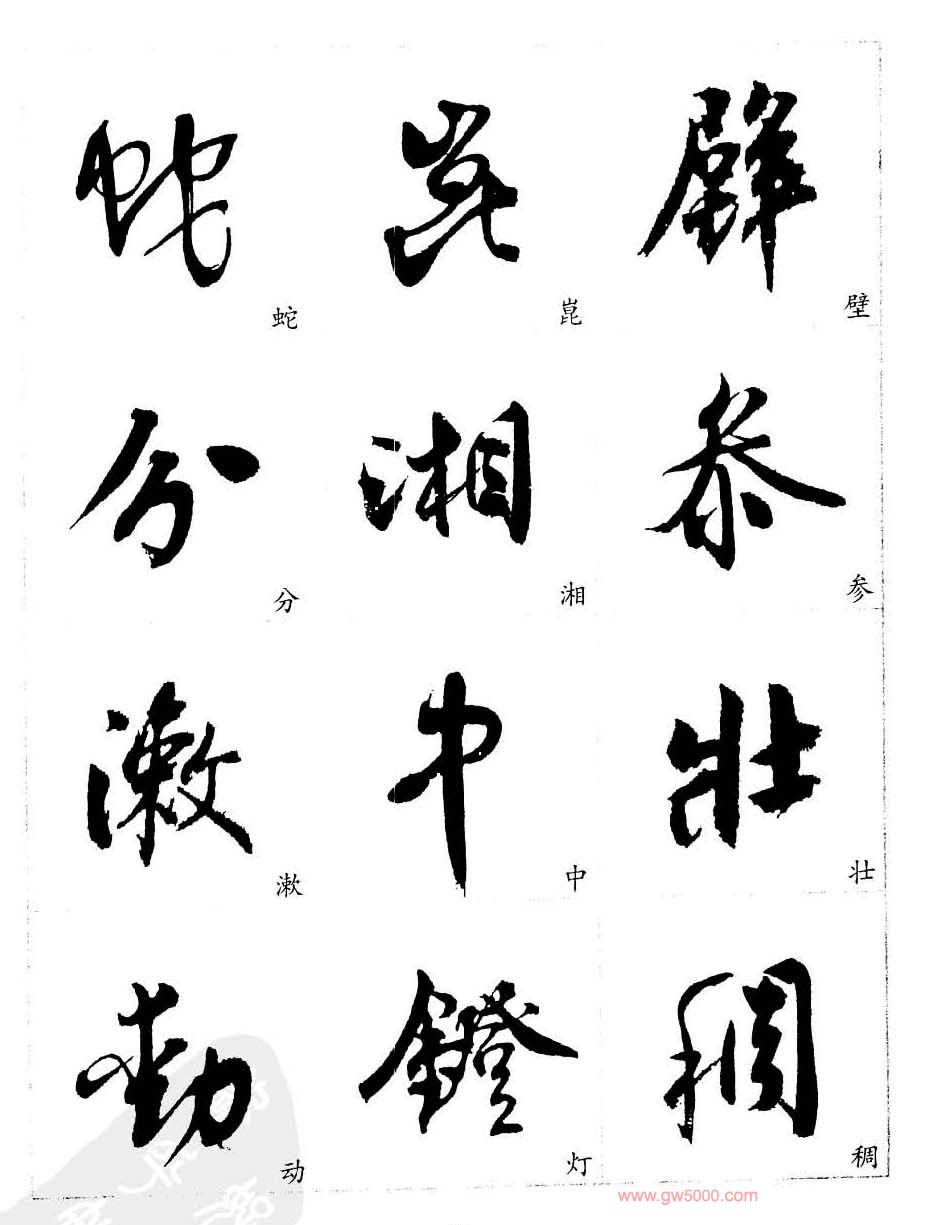 壁
壁
参
参
壯
壮
稠
稠
崑
崑
湘
湘
中
中
鐙
灯
蛇
蛇
分
分
漱
漱
動
动
www.gw5000.com